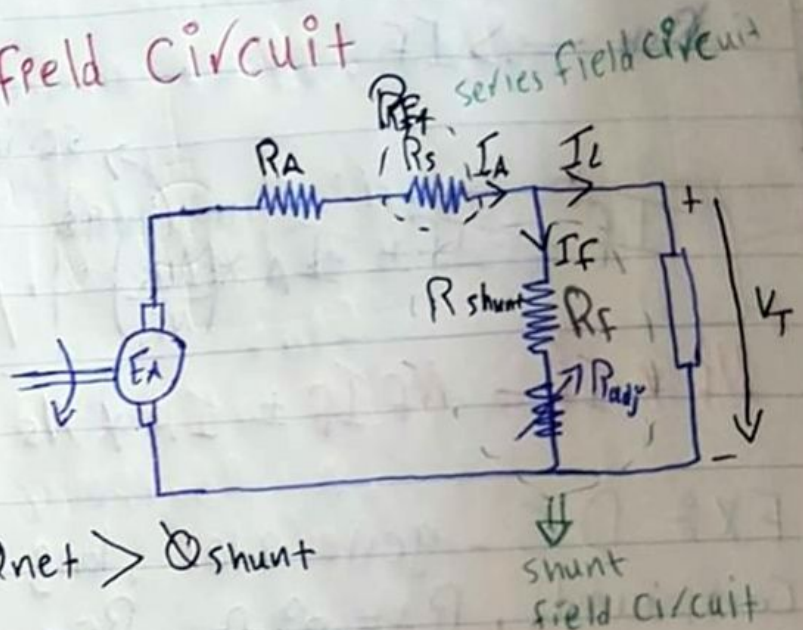 field Circuit
series field circuit
RA
Rs
IA
IL
+
If
R shunt
Rf
Radj
EA
VT
-
net > Øshunt
⇓
shunt
field Circuit